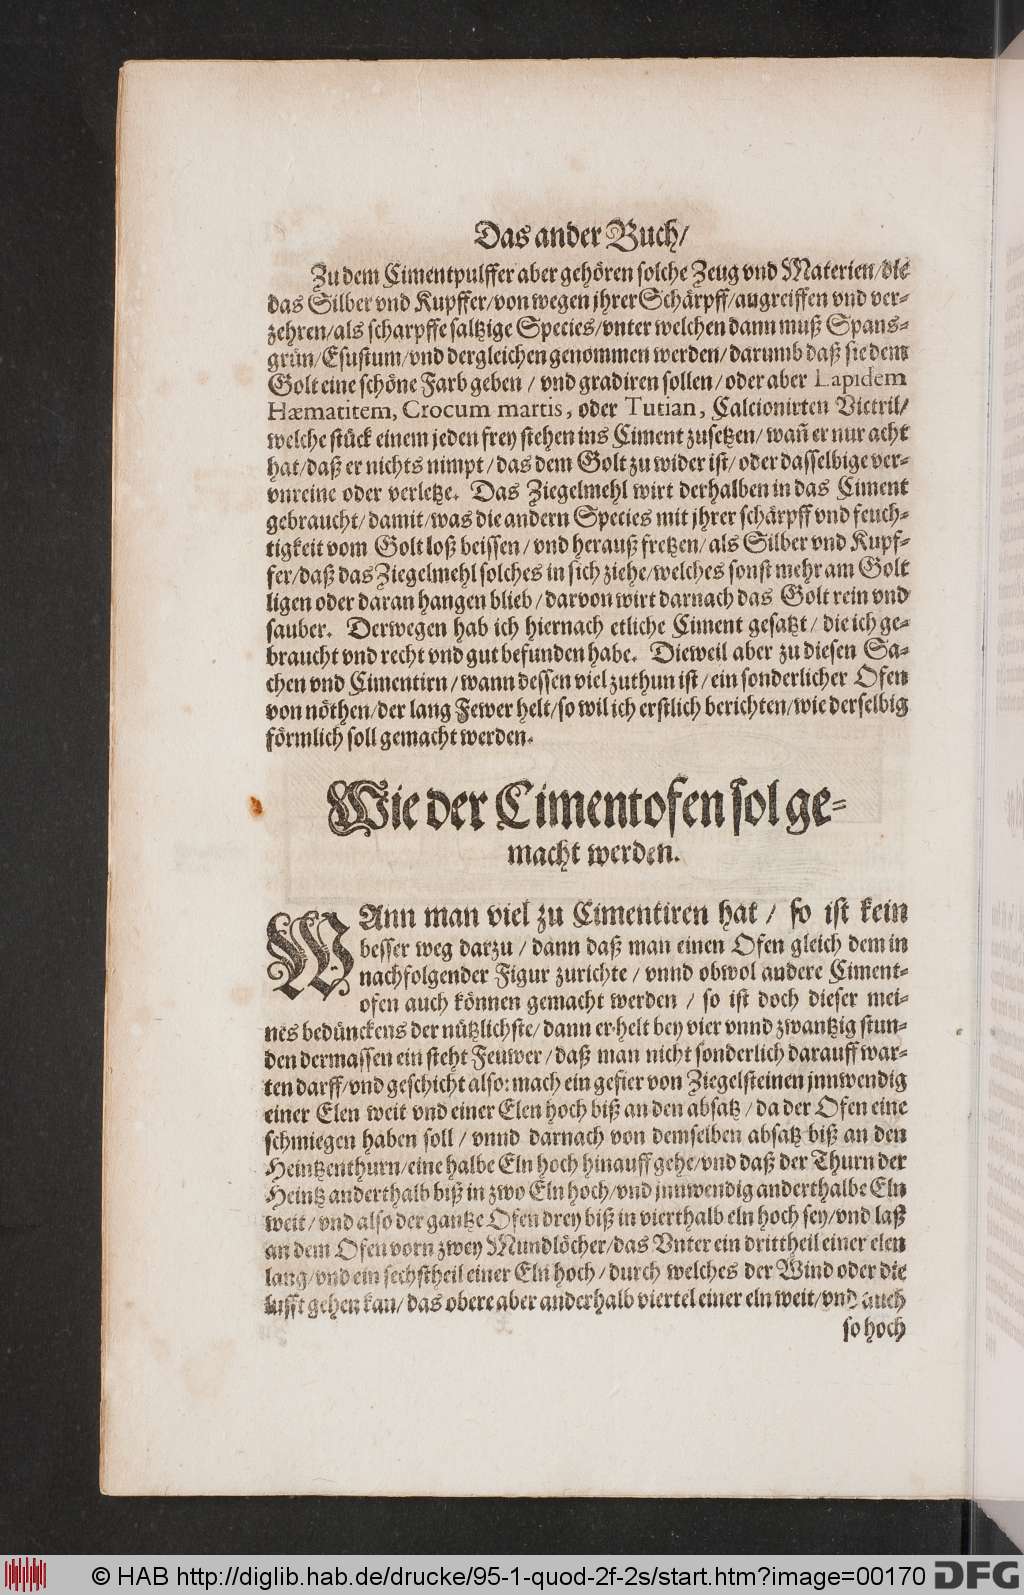 Das ander Buch/
Zu dem Cimentpulffer aber gehören solche Zeug vnd Materien/die
das Silber vnd Kupffer/von wegen jhrer Schärpff/angreiffen vnd ver-
zehren/als scharpffe saltzige Species/vnter welchen dann muß Spans-
grün/Esustum/vnd dergleichen genommen werden/darumb daß sie dem
Golt eine schöne Farb geben/vnd gradiren sollen/oder aber Lapidem
Hæmatitem, Crocum martis, oder Tutian, Calcionirten Victril/
welche stück einem jeden frey stehen ins Ciment zusetzen/wañ er nur acht
hat/daß er nichts nimpt/das dem Golt zu wider ist/oder dasselbige ver-
vnreine oder verletze. Das Ziegelmehl wirt derhalben in das Ciment
gebraucht/damit/was die andern Species mit jhrer schärpff vnd feuch-
tigkeit vom Golt loß beissen/vnd herauß fretzen/als Silber vnd Kupf-
fer/daß das Ziegelmehl solches in sich ziehe/welches sonst mehr am Golt
ligen oder daran hangen blieb/darvon wirt darnach das Golt rein vnd
sauber. Derwegen hab ich hiernach etliche Ciment gesatzt/die ich ge-
braucht vnd recht vnd gut befunden habe. Dieweil aber zu diesen Sa-
chen vnd Cimentirn/wann dessen viel zuthun ist/ein sonderlicher Ofen
von nöthen/der lang Fewer helt/so wil ich erstlich berichten/wie derselbig
förmlich soll gemacht werden.
Wie der Cimentofen sol ge-
macht werden.
WAnn man viel zu Cimentiren hat/so ist kein
besser weg darzu/dann daß man einen Ofen gleich dem in
nachfolgender Figur zurichte/vnnd obwol andere Ciment-
ofen auch können gemacht werden/so ist doch dieser mei-
nes bedünckens der nützlichste/dann er helt bey vier vnnd zwantzig stun-
den dermassen ein steht Feuwer/daß man nicht sonderlich darauff war-
ten darff/vnd geschicht also: mach ein gefier von Ziegelsteinen jnnwendig
einer Elen weit vnd einer Elen hoch biß an den absatz/da der Ofen eine
schmiegen haben soll/vnnd darnach von demselben absatz biß an den
Heintzenthurn/eine halbe Eln hoch hinauff gehe/vnd daß der Thurn der
Heintz anderthalb biß in zwo Eln hoch/vnd jnnwendig anderthalbe Eln
weit/vnd also der gantze Ofen drey biß in vierthalb eln hoch sey/vnd laß
an dem Ofen vorn zwey Mundlöcher/das Vnter ein drittheil einer elen
lang/vnd ein sechstheil einer Eln hoch/durch welches der Wind oder die
lufft gehen kan/das obere aber anderhalb viertel einer eln weit/vnd auch
so hoch
© HAB http://diglib.hab.de/drucke/95-1-quod-2f-2s/start.htm?image=00170 DFG